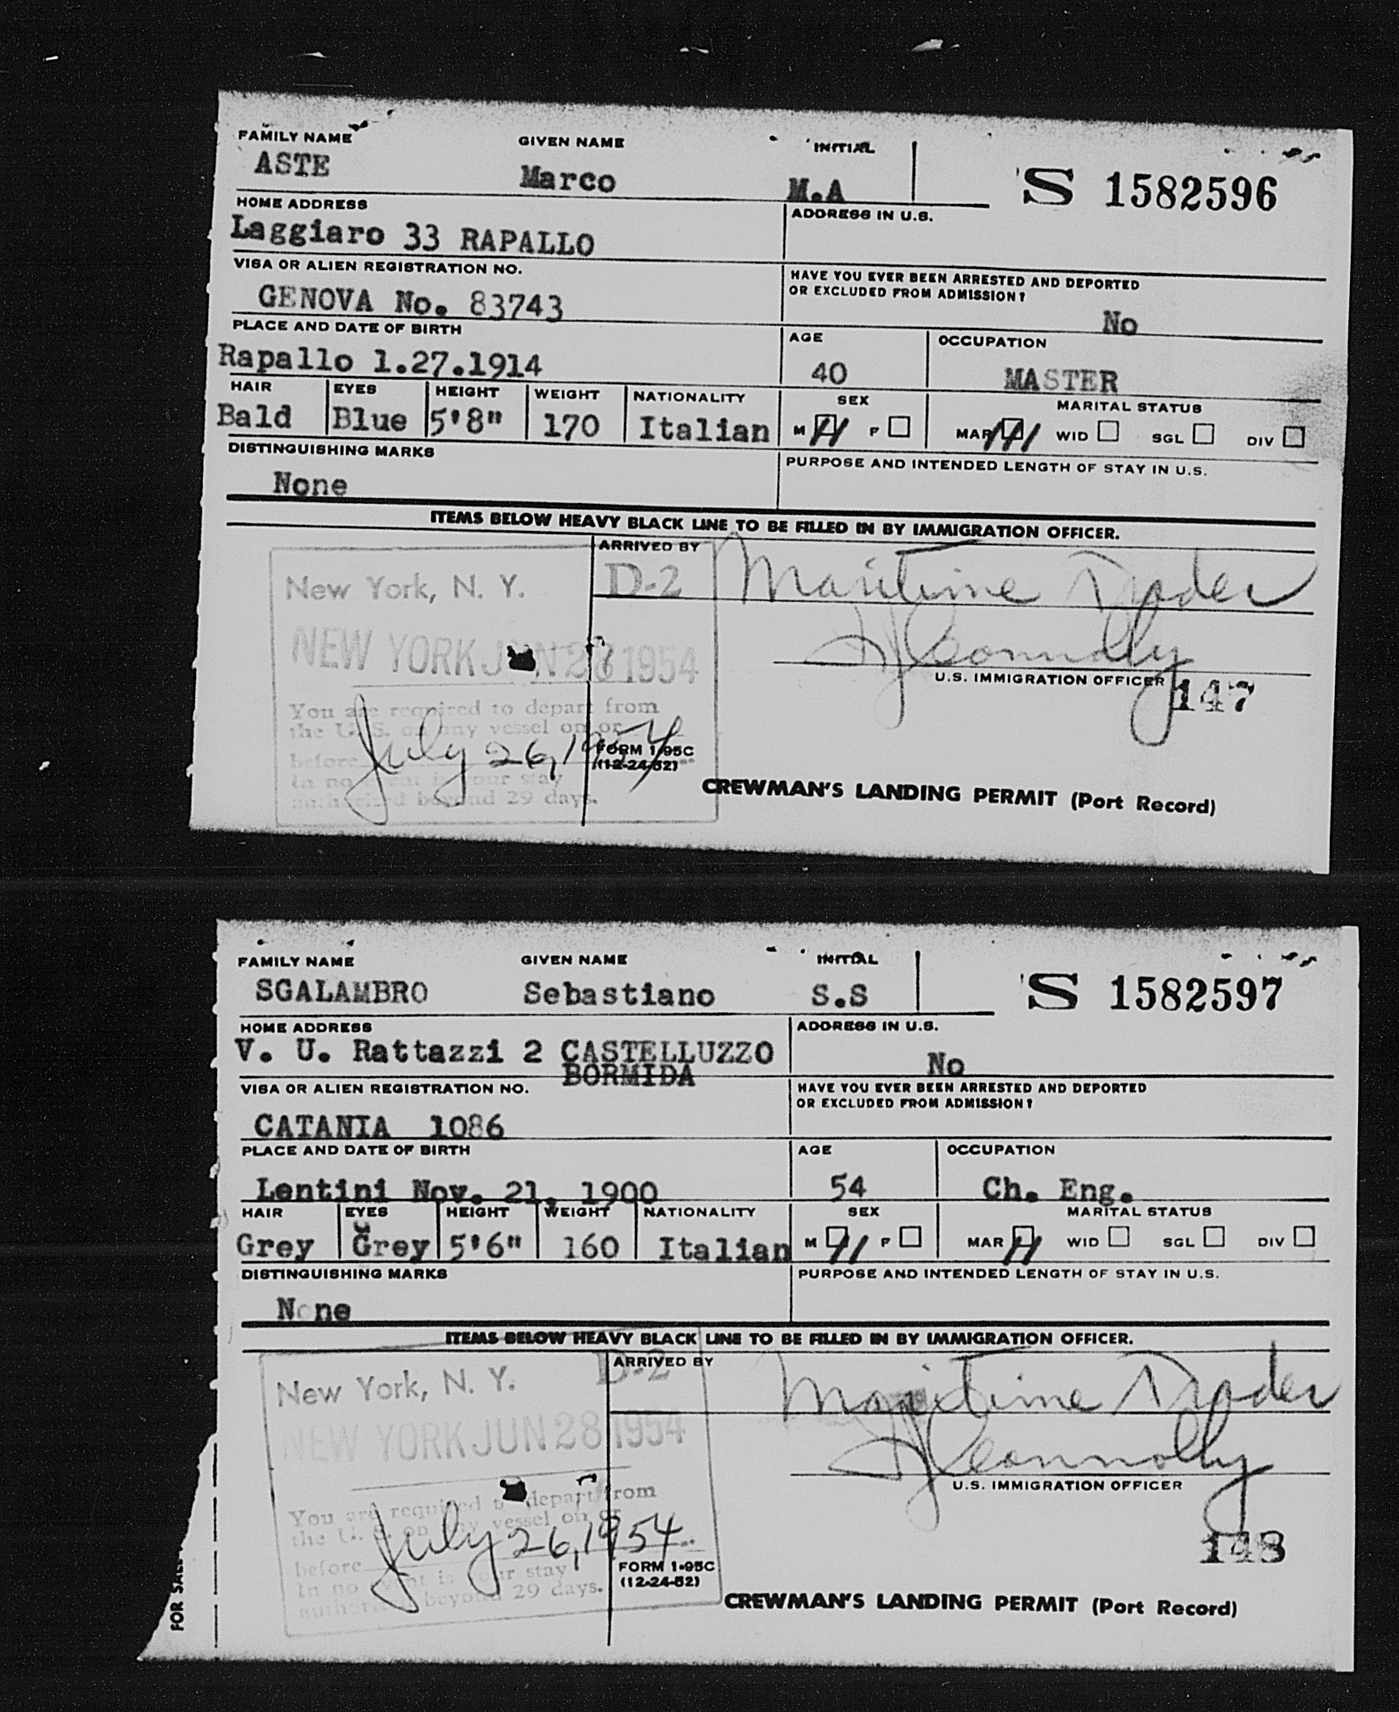 FAMILY NAME GIVEN NAME INITIAL
ASTE Marco M.A S 1582596
HOME ADDRESS ADDRESS IN U.S.
Laggiaro 33 RAPALLO
VISA OR ALIEN REGISTRATION NO. HAVE YOU EVER BEEN ARRESTED AND DEPORTED
OR EXCLUDED FROM ADMISSION?
GENOVA No. 83743 No
PLACE AND DATE OF BIRTH AGE OCCUPATION
Rapallo 1.27.1914 40 MASTER
HAIR EYES HEIGHT WEIGHT NATIONALITY SEX MARITAL STATUS
Bald Blue 5'8" 170 Italian M F MAR WID SGL DIV
DISTINGUISHING MARKS PURPOSE AND INTENDED LENGTH OF STAY IN U.S.
None
ITEMS BELOW HEAVY BLACK LINE TO BE FILLED IN BY IMMIGRATION OFFICER.
ARRIVED BY
New York, N. Y. D-2 Maritime Trader
NEW YORK JUN 28 1954 Connolly
U.S. IMMIGRATION OFFICER
147
You are required to depart from
the U. S. on any vessel on or
before July 26, 1954
In no event is your stay
authorized beyond 29 days.
FORM I-95C
(12-24-52)
CREWMAN'S LANDING PERMIT (Port Record)
FAMILY NAME GIVEN NAME INITIAL
SGALAMBRO Sebastiano S.S S 1582597
HOME ADDRESS ADDRESS IN U.S.
V. U. Rattazzi 2 CASTELLUZZO No
BORMIDA
VISA OR ALIEN REGISTRATION NO. HAVE YOU EVER BEEN ARRESTED AND DEPORTED
OR EXCLUDED FROM ADMISSION?
CATANIA 1086
PLACE AND DATE OF BIRTH AGE OCCUPATION
Lentini Nov. 21, 1900 54 Ch. Eng.
HAIR EYES HEIGHT WEIGHT NATIONALITY SEX MARITAL STATUS
Grey Grey 5'6" 160 Italian M F MAR WID SGL DIV
DISTINGUISHING MARKS PURPOSE AND INTENDED LENGTH OF STAY IN U.S.
None
ITEMS BELOW HEAVY BLACK LINE TO BE FILLED IN BY IMMIGRATION OFFICER.
ARRIVED BY
New York, N. Y. D-2 Maritime Trader
NEW YORK JUN 28 1954 Connolly
U.S. IMMIGRATION OFFICER
148
You are required to depart from
the U. S. on any vessel on or
before July 26, 1954
In no event is your stay
authorized beyond 29 days.
FORM I-95C
(12-24-52)
CREWMAN'S LANDING PERMIT (Port Record)
FOR SALE